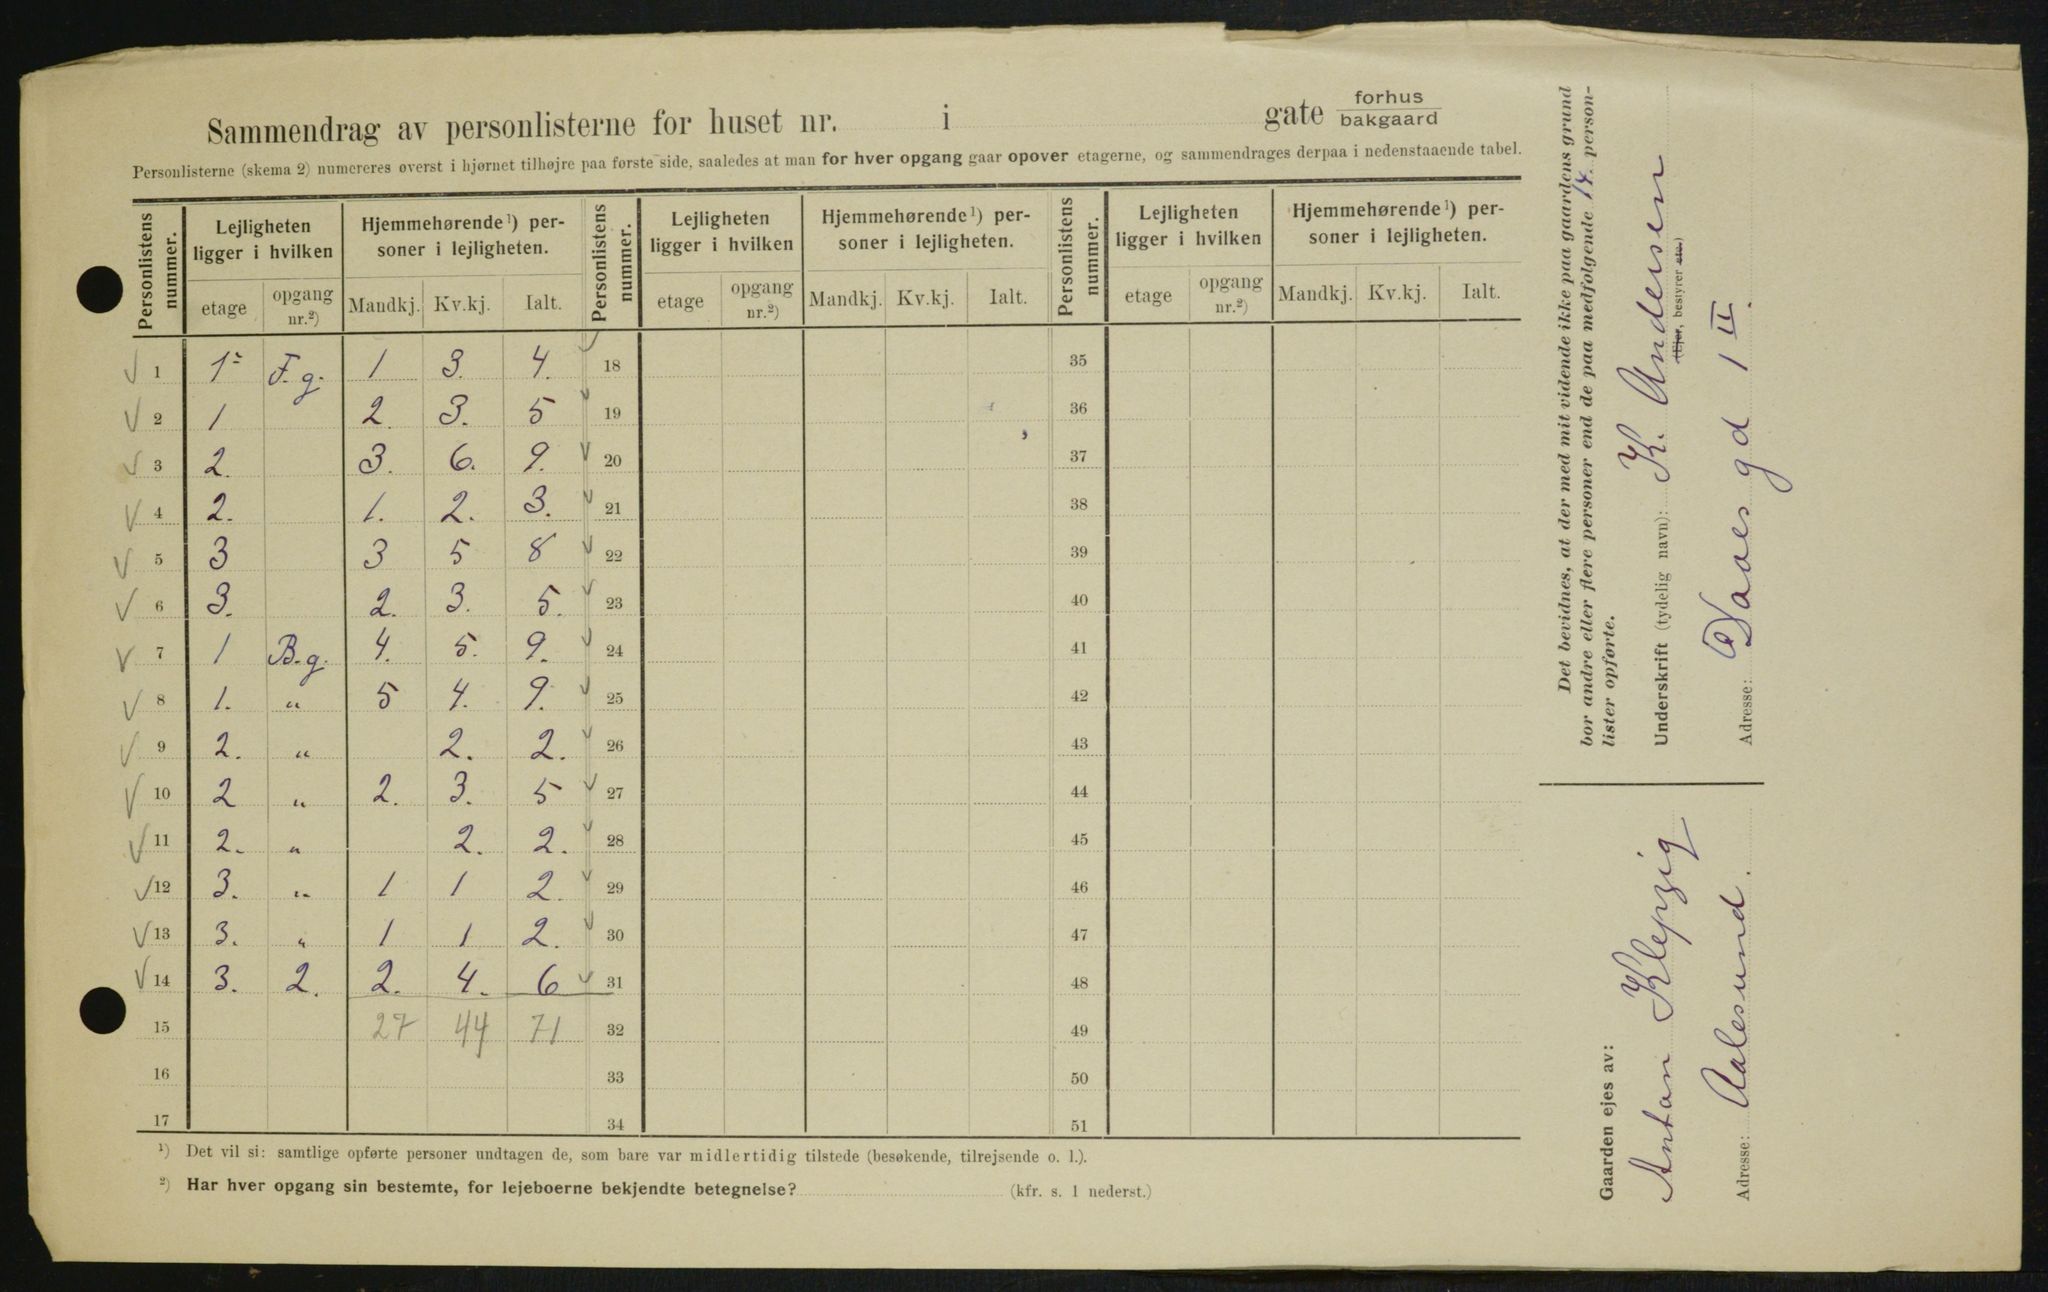 Sammendrag av personlisterne for huset nr. i gate forhus bakgaard
Personlisterne (skema 2) numereres øverst i hjørnet tilhøjre paa første side, saaledes at man for hver opgang gaar opover etagerne, og sammendrages derpaa i nedenstaaende tabel.
Personlistens nummer. Lejligheten ligger i hvilken Hjemmehørende ¹) personer i lejligheten. Personlistens nummer. Lejligheten ligger i hvilken Hjemmehørende ¹) personer i lejligheten. Personlistens nummer. Lejligheten ligger i hvilken Hjemmehørende ¹) personer i lejligheten.
etage opgang nr.²) Mandkj. Kv.kj. Ialt. etage opgang nr.²) Mandkj. Kv.kj. Ialt. etage opgang nr.²) Mandkj. Kv.kj. Ialt.
1 1 F.g. 1 3. 4. 18 35
2 1 2. 3. 5 19 36
3 2. 3. 6. 9. 20 37
4 2. 1. 2. 3. 21 38
5 3 3 5 8 22 39
6 3. 2. 3. 5. 23 40
7 1 B.g. 4. 5. 9. 24 41
8 1. " 5 4. 9. 25 42
9 2. " 2. 2. 26 43
10 2 " 2. 3. 5 27 44
11 2. " 2. 2. 28 45
12 3. " 1 1 2. 29 46
13 3. " 1 1 2. 30 47
14 3. 2. 2. 4. 6 31 48
15 27 44 71 32 49
16 33 50
17 34 51
¹) Det vil si: samtlige opførte personer undtagen de, som bare var midlertidig tilstede (besøkende, tilrejsende o. l.).
²) Har hver opgang sin bestemte, for lejeboerne bekjendte betegnelse? (kfr. s. 1 nederst.)
Det bevidnes, at der med mit vidende ikke paa gaardens grund
bor andre eller flere personer end de paa medfølgende 14 person-
lister opførte.
Underskrift (tydelig navn): K. Andersen
(Ejer, bestyrer etc.)
Adresse: Daaes gd 1 II.
Gaarden ejes av:
Anton Klepzig
Adresse: Aalesund.